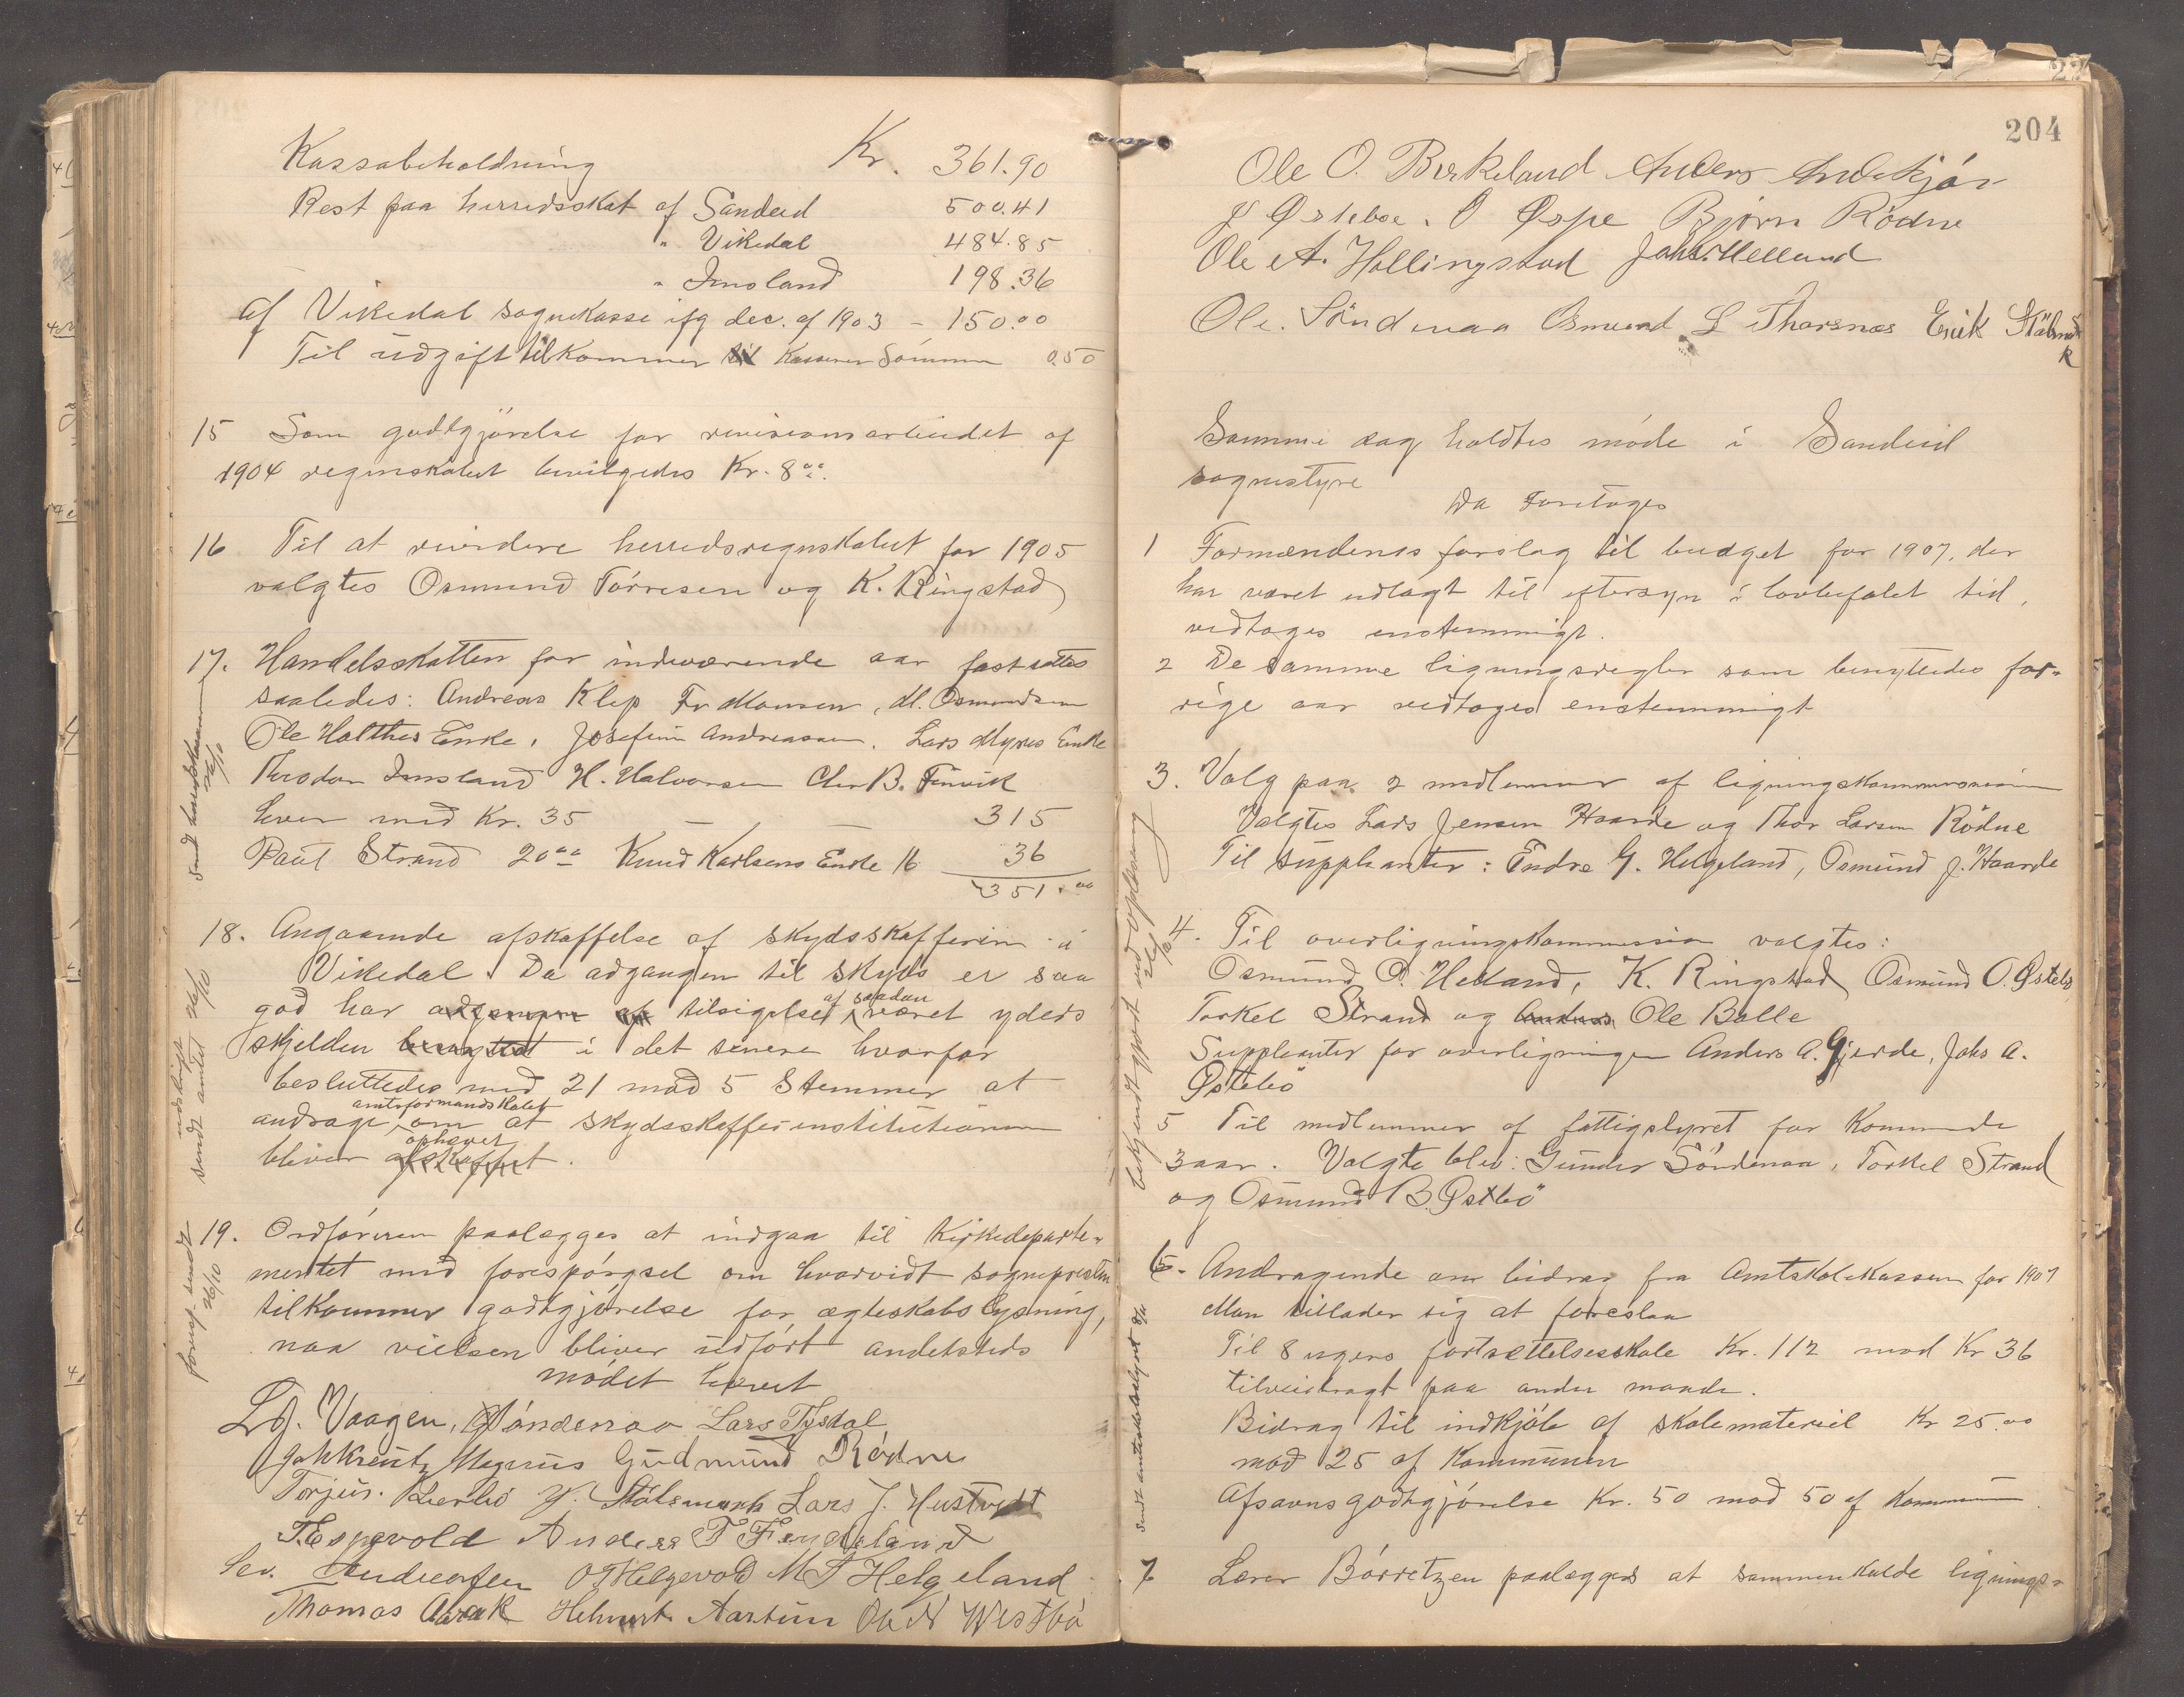 Kassabeholdning Kr. 361.90
Rest paa herredsskat af Sandeid 500.41
" Vikedal 484.85
" Imsland 198.36
af Vikedal sognekasse ifg dec. af 1903 – 150.00
Til udgift tilkommer til Kasserer Sømme 0.50
15 Som godtgjørelse for revisionsarbeidet af
1904 regnskabet bevilgedes Kr. 8.00
16 Til at revidere herredsregnskabet for 1905
valgtes Osmund Tørresen og K. Ringstad
17. Handelsskatten for indeværende aar fastsattes
saaledes: Andreas Klep Fr Monsen, M. Osmundsen
Ole Halthes Enke, Josefine Andreassen. Lars Myres Enke
Theodor Imsland H. Halvorsen Chr B. Finvik
hver med Kr. 35 — — 315
Paul Strand 20.00 Knud Karlsens Enke 16 36
351.00
Sendt herredskasserer 26/10
18. Angaaende afskaffelse af skydsskafferen i
Vikedal. Da adgangen til skyds er saa
god har adgangen af tilsigelse af saadan været yders
skjelden benyttet i det senere hvorfor
besluttedes med 21 mod 5 stemmer at
andrage amtsformandskabet om at skydsskafferinstitutionen
bliver afskaffet ophævet.
udskrift sendt amtet 26/10
19. Ordføreren paalægges at indgaa til Kirkedeparte-
mentet med forespørgsel om hvorvidt sognepresten
tilkommer godtgjørelse for ægteskabslysning,
naar vielsen bliver udført andetsteds
mødet hævet
foresp. sendt 26/10
L J. Vaagen, Søndenaa Lars Tysdal
Magnus Gudmund Rødne
Torjus. Kjerbø J. Stålemark Lars J. Hustvedt
T. Espevold Anders T Fendeland
Sev. Andersen O Helgevold M T Helgeland
Thomas Aarak Helmert Aartun Ole N Westbø
204
Ole O. Birkeland Anders Andskjør
J Østebø. O Øspe Bjørn Rødne
Ole A. Hallingstad Johs. Helland
Ole. Søndenaa Osmund L Tharsnæs Erik Stålemark
Samme dag holdtes møde i Sandeid
sognestyre
Da Foretoges
1 Formændenes forslag til budget for 1907, der
har været udlagt til eftersyn i lovbefalet tid,
vedtoges enstemmigt.
2 De samme ligningsregler som benyttedes for-
rige aar vedtoges enstemmigt
3. Valg paa 2 medlemmer af ligningskommissionen
Valgtes Lars Jensen Haarde og Thor Larsen Rødne
Til suppleanter: Endre G. Helgeland, Osmund J. Haarde
4. Til overligningskommission valgtes:
Osmund O. Helland, K. Ringstad Osmund O. Østebø
Torkel Strand og Anders Ole Balle
Suppleanter for overligningen Anders A. Gjerde, Johs A.
Østebø
bekjendtgjort ved opslag 26/10
5 Til medlemmer af fattigstyret for kommende
3 aar. Valgte blev: Gunder Søndenaa, Torkel Strand
og Osmund B. Østbø
6. Andragende om bidrag fra Amtskolekassen for 1907
Man tillader sig at foreslaa
Til 8 ugers fortsættelsesskole Kr. 112 mod Kr 36
tilveiebragt paa anden maade.
Bidrag til indkjøb af skolemateriel Kr 25.00
mod 25 af Kommunen
Afsavnsgodtgjørelse Kr. 50 mod 50 af Kommunen.
sendt amtsskolestyret
7 Lærer Børretzen paalægges at sammenkalde lignings-